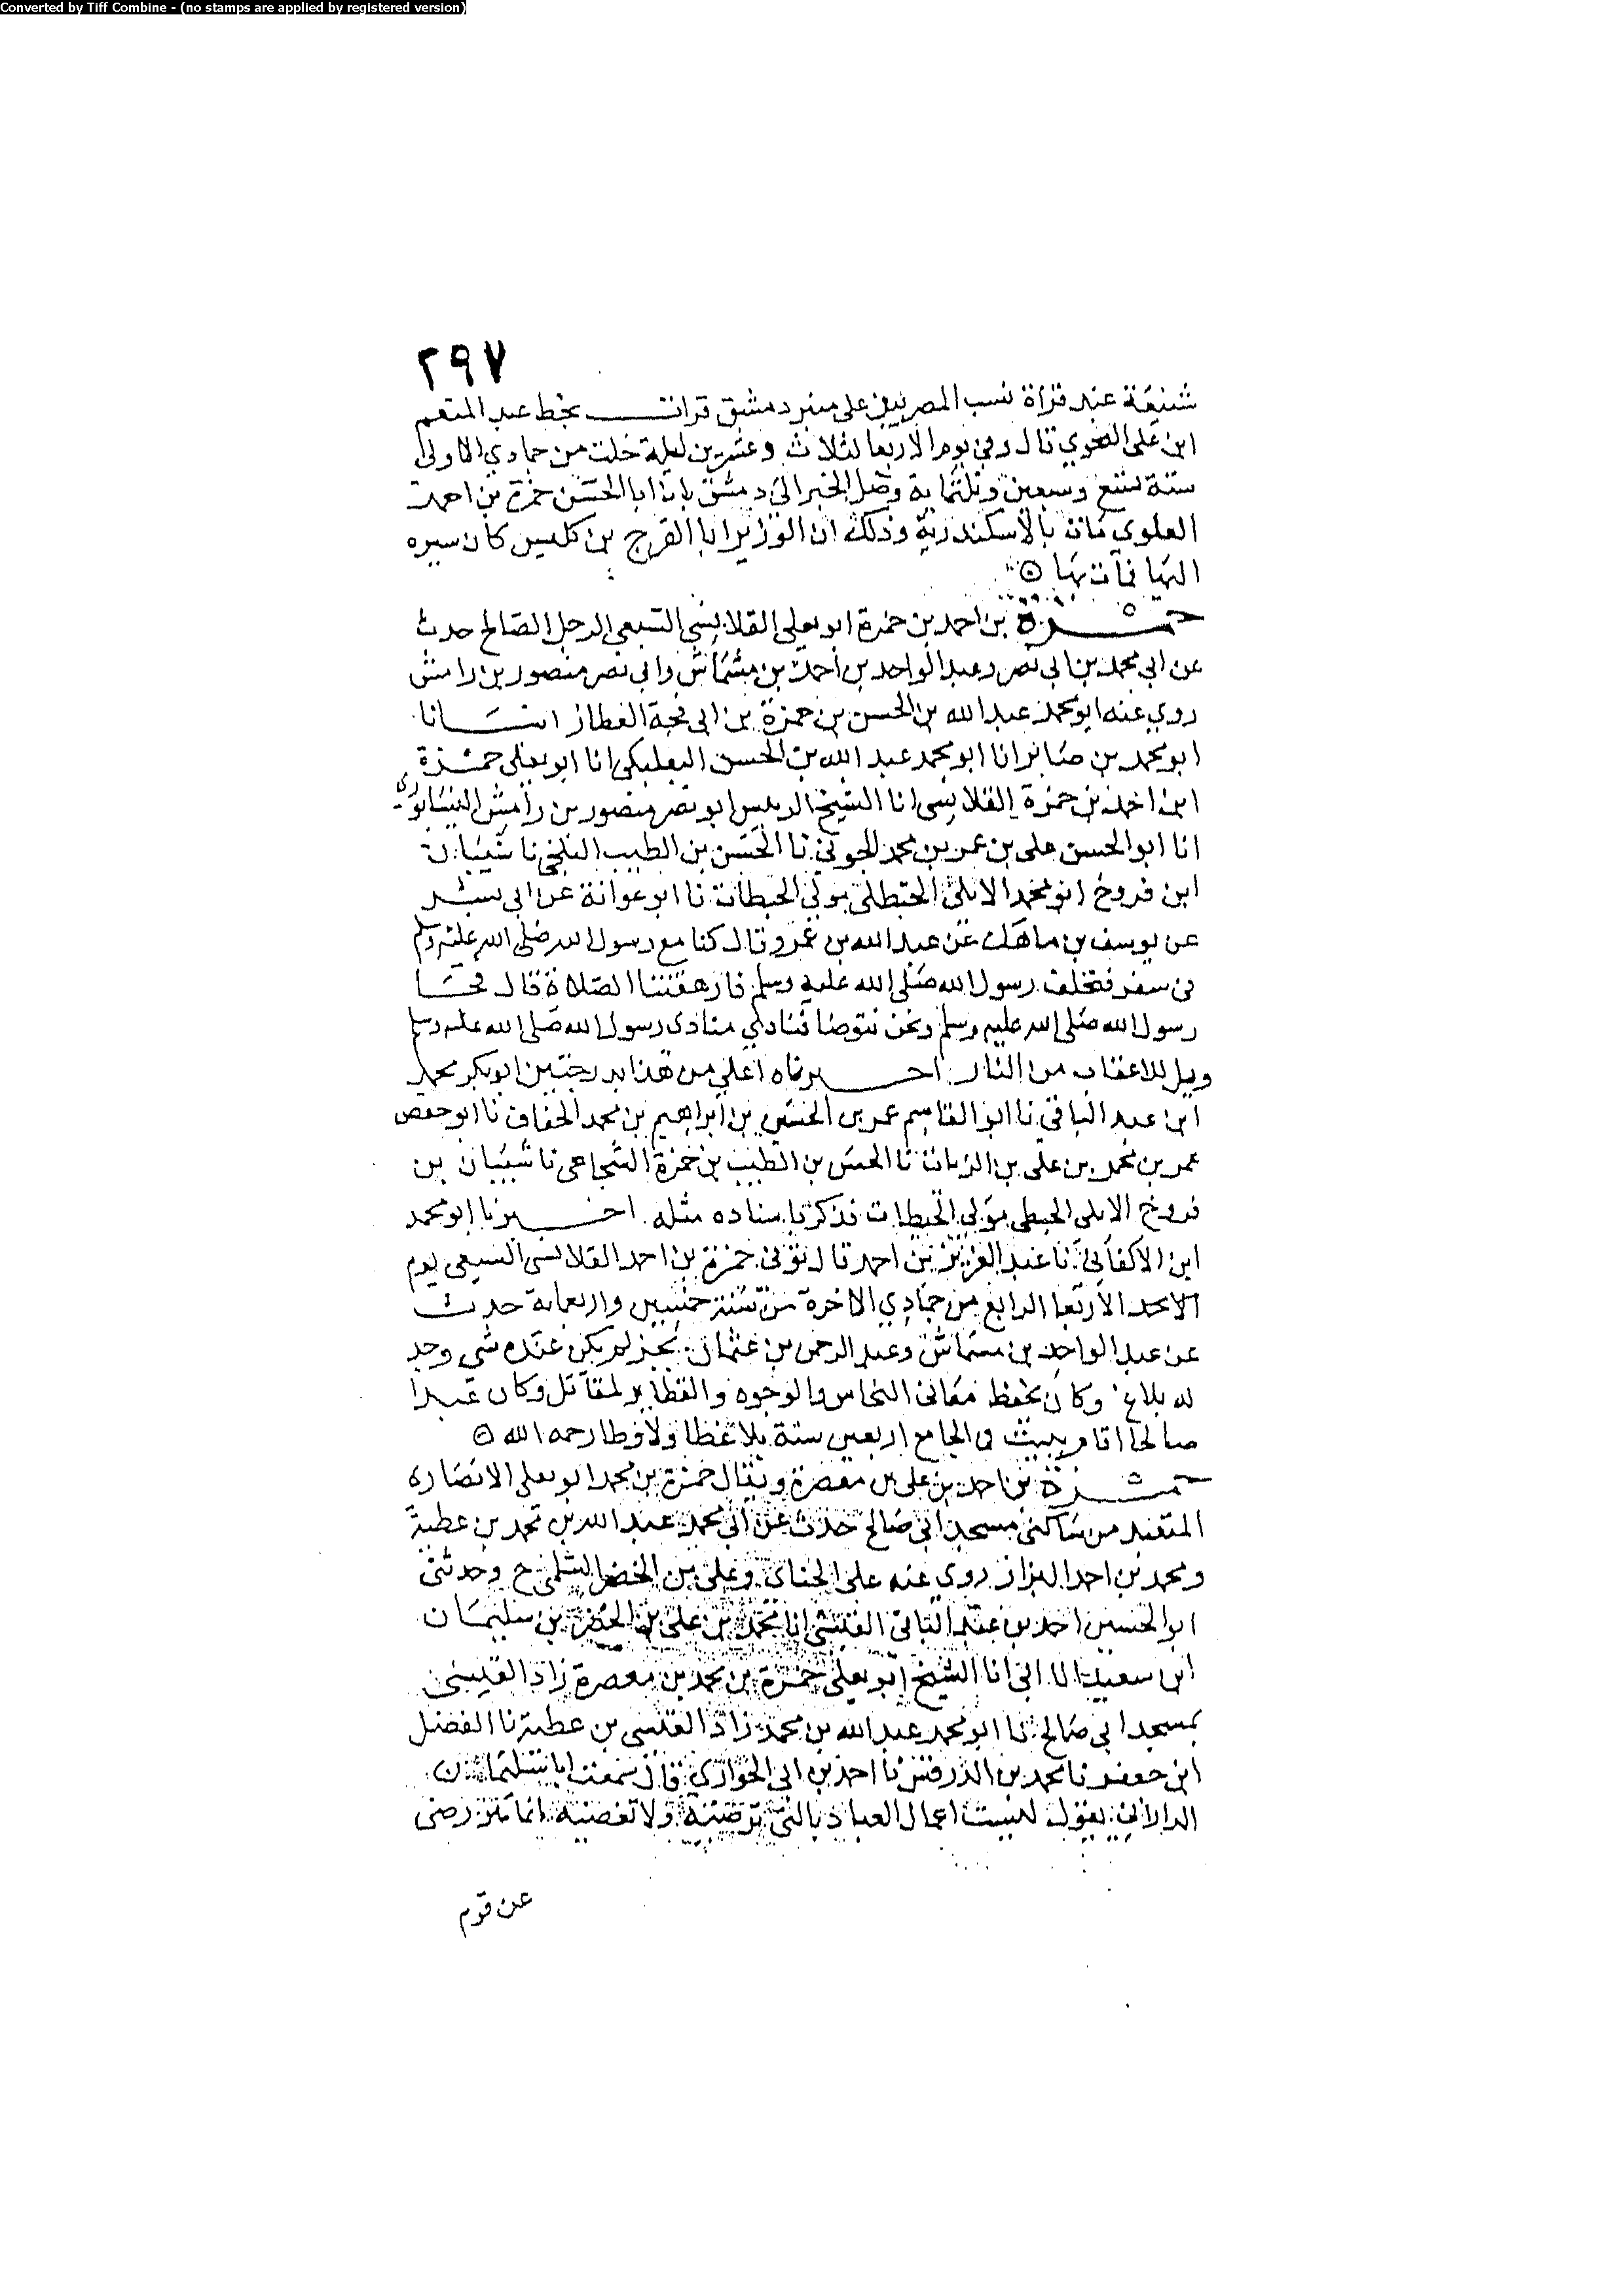 Converted by Tiff Combine - (no stamps are applied by registered version)
٢٩٧
شنيعة عند قراة نسب المصريين على منبر دمشق قرات بخط عبد المنعم
ابن على النحوي قال وفي يوم الاربعا لثلاث وعشرين ليلة خلت من جمادي الاولى
سنة تسع وسبعين وثلثماية وصل الخبر الى دمشق بان ابا الحسن حمزة بن احمد
العلوي مات بالاسكندرية وذلك ان الوزير ابا الفرج بن كلس كان سيره
اليها فمات بها
حمزة بن احمد بن حمزة ابو يعلى القلانسي السبعي الرجل الصالح حدث
عن ابي محمد بن ابي نصر وعبد الواحد بن احمد بن مشماش وابي نصر منصور بن رامش
روي عنه ابو محمد عبد الله بن الحسن بن حمزة بن ابي فجة العطار انبانا
ابو محمد بن صابر انا ابو محمد عبد الله بن الحسن البعلبكي انا ابو يعلى حمزة
ابن احمد بن حمزة القلانسي انا الشيخ الريس ابو نصر منصور بن رامش النيسابوري
انا ابو الحسن على بن عمر بن محمد الحربي نا الحسن بن الطيب البلخي نا شيبان
ابن فروخ ابو محمد الابلي الحبطلي مولي الحبطات نا ابو عوانة عن ابي بشر
عن يوسف بن ماهك عن عبد الله بن عمرو قال كنا مع رسول الله صلى الله عليه وسلم
في سفر فتخلف رسول الله صلى الله عليه وسلم فارهقتنا الصلاة قال فجا
رسول الله صلى الله عليه وسلم ونحن نتوضا فنادي منادي رسول الله صلى الله عليه وسلم
ويل للاعقاب من النار اخبرناه اعلي من هذا بدرجتين ابو بكر محمد
ابن عبد الباقي نا ابو القاسم عمر بن الحسين بن ابراهيم بن محمد الخفاف نا ابو حفص
عمر بن محمد بن على بن الزيات نا الحسن بن الطيب بن حمزة الشجاعي نا شيبان بن
فروخ الابلي الحبطي مولي الحبطات فذكر باسناده مثله اخبرنا ابو محمد
ابن الاكفاني نا عبد العزيز بن احمد قال توفي حمزة بن احمد القلانسي السبعي يوم
الاحد الاربعا الرابع من جمادي الاخرة من سنة خمسين واربعماية حدث
عن عبد الواحد بن مشماش وعبد الرحمن بن عثمان بجز لم يكن عنده شي وجد
له بلاغ وكان يحفظ معاني النحاس والوجوه والنظاير لمقاتل وكان عبدا
صالحا اقام يبيت في الجامع اربعين سنة بلا غطا ولا وطا رحمه الله
حمزة بن احمد بن على بن معصرة ويقال حمزة بن محمد ابو يعلى الانصاري
المتعبد من ساكني مسجد ابي صالح حدث عن ابي محمد عبد الله بن محمد بن عطية
ومحمد بن احمد البزاز روي عنه على الحناي وعلى بن الخضر السلمي ح وحدثني
ابو الحسين احمد بن عبد الباقي القيسي انا محمد بن على بن الخضر بن سليمان
ابن سعيد انا ابي انا الشيخ ابو يعلى حمزة بن محمد بن معصرة زاد القيسي
بمسجد ابي صالح نا ابو محمد عبد الله بن محمد زاد القيسي بن عطية نا الفضل
ابن جعفر نا محمد بن الدرفس نا احمد بن ابي الحواري قال سمعت ابا سليمان
الداراني يقول ليست اعمال العباد بالتي ترضيه ولا تغضبه انما رضي
عن قوم